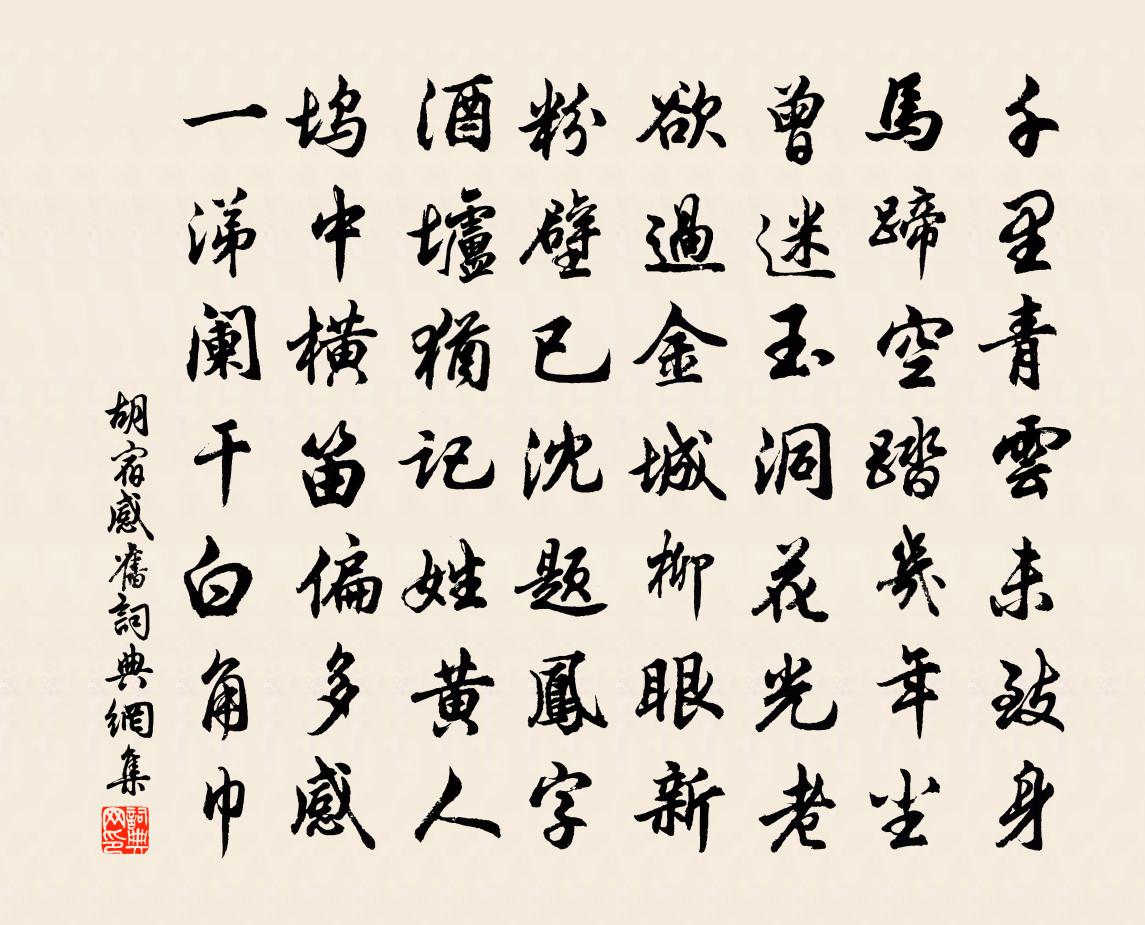 千里青雲未致身
馬蹄空踏幾年尘
曾迷玉洞花光老
欲過金城柳眼新
粉壁已沈題鳳字
酒壚猶記姓黃人
塢中橫笛偏多感
一涕闌干白角巾
胡宿感舊詞典網集
詞典網印